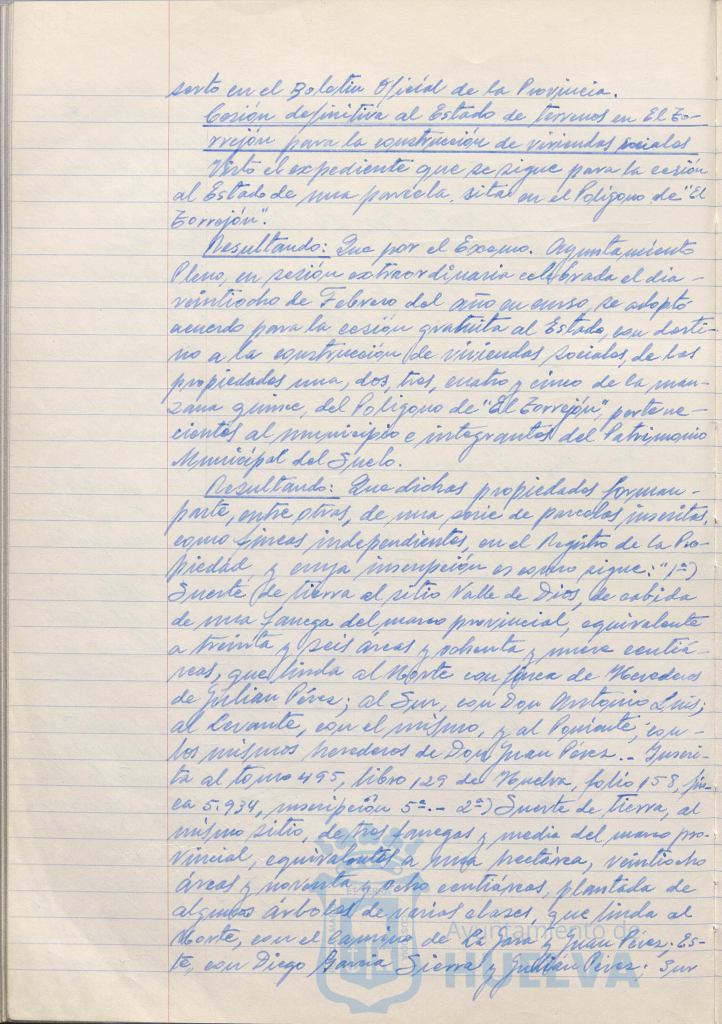 serto en el Boletin Oficial de la Provincia.
Cesión definitiva al Estado de terrenos en El To-
rrejón para la construcción de viviendas sociales
Visto el expediente que se sigue para la cesión
al Estado de una parcela, sita en el Polígono de "El
Torrejón".
Resultando: Que por el Excmo. Ayuntamiento
Pleno, en sesión extraordinaria celebrada el dia-
veintiocho de Febrero del año en curso, se adoptó
acuerdo para la cesión gratuita al Estado, con desti-
no a la construcción de viviendas sociales, de las
propiedades una, dos, tres, cuatro y cinco de la man-
zana quince, del Poligono de "El Torrejón", pertene-
cientes al municipio e integrantes del Patrimonio
Municipal del Suelo.
Resultando: Que dichas propiedades forman-
parte, entre otras, de una serie de parcelas inscritas,
como fincas independientes, en el Registro de la Pro-
piedad y cuya inscripción es como sigue: "1ª)
Suerte de tierra al sitio Valle de Dios, de cabida
de una fanega del marco provincial, equivalente
a treinta y seis áreas y ochenta y nueve centiá-
reas, que linda al Norte con finca de Herederos
de Julian Pérez; al Sur, con Don Antonio Luis;
al Levante, con el mismo, y al Poniente, con-
los mismos herederos de Don Juan Pérez.- Inscri-
ta al tomo 495, libro 129 de Huelva, folio 158, fin-
ca 5.934, inscripción 5ª.- 2ª) Suerte de tierra, al
mismo sitio, de tres fanegas y media del marco pro-
vincial, equivalentes a una hectárea, veintiocho
áreas y noventa y ocho centiáreas, plantada de
algunos árboles de varias clases, que linda al
Norte, con el Camino de La Jara y Juan Pérez; Es-
te, con Diego García Sierra y Julián Pérez; Sur
Ayuntamiento de
HUELVA